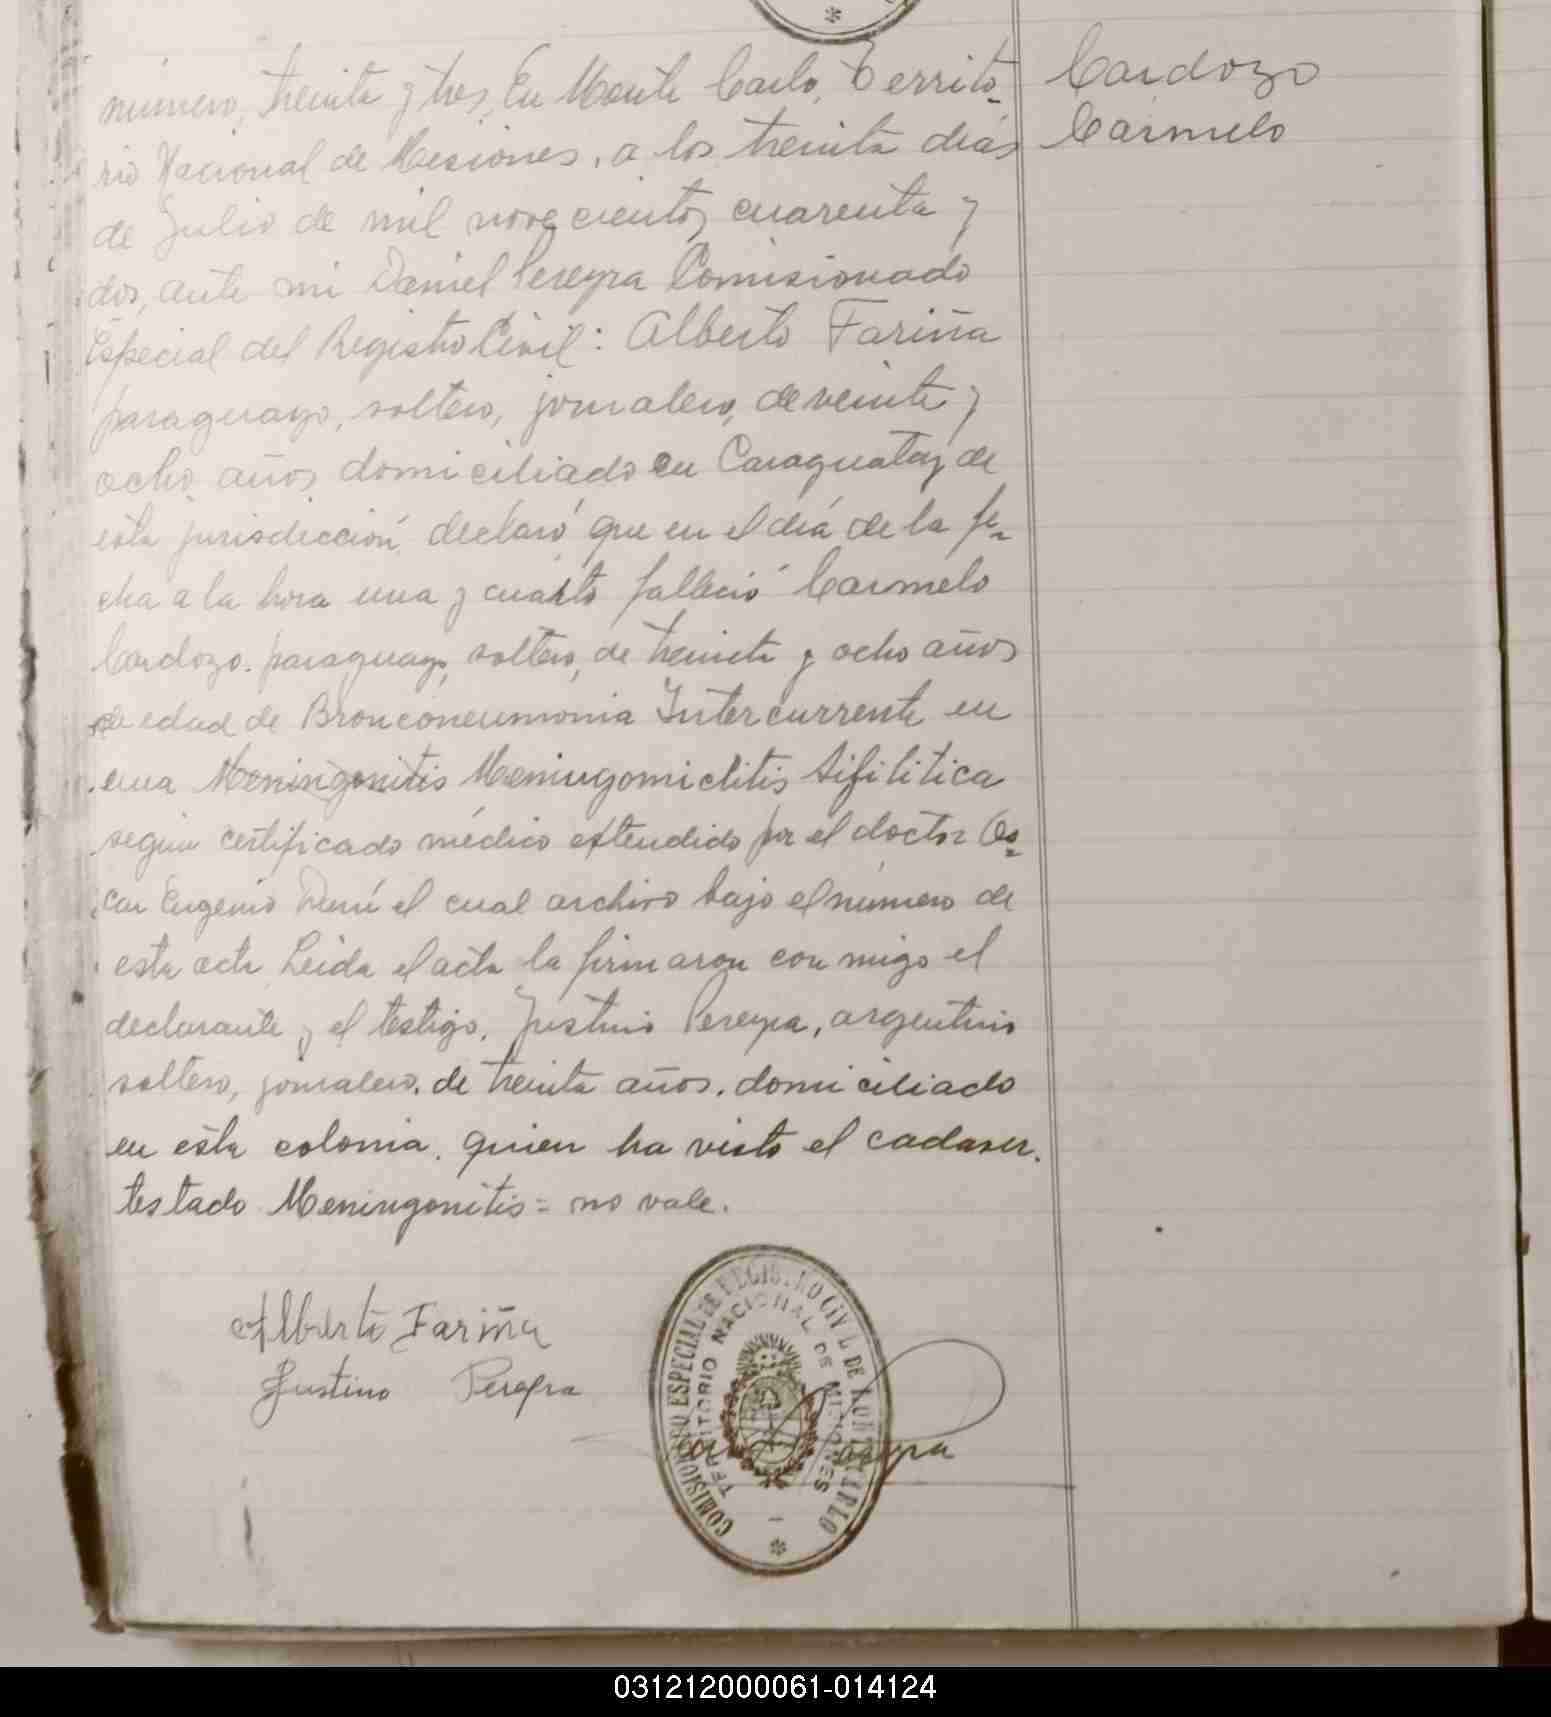 Cardozo
Carmelo
número, treinta y tres, En Monte Carlo, Territo-
rio Nacional de Misiones, a los treinta días
de Julio de mil novecientos cuarenta y
dos, ante mi Daniel Pereyra Comisionado
Especial del Registro Civil: Alberto Fariña
paraguayo, soltero, jornalero, de veinte y
ocho años domiciliado en Caraguatay de
esta jurisdicción declaró que en el día de la fe-
cha a la hora una y cuarto falleció Carmelo
Cardozo. paraguayo, soltero, de treinta y ocho años
de edad de Bronconeumonia Intercurrente en
una Meningonitis Meningomielitis Sifilitica
según certificado médico extendido por el doctor Os-
car Eugenio el cual archivo bajo el número de
esta acta Leida el acta la firmaron con migo el
declarante y el testigo, Justino Pereyra, argentino
soltero, jornalero, de treinta años, domiciliado
en esta colonia, quien ha visto el cadaver.
testado Meningonitis = no vale.
Alberto Fariña
Justino Pereyra
COMISIONADO ESPECIAL DE REGISTRO CIVIL DE MONTE CARLO
TERRITORIO NACIONAL DE MISIONES
031212000061-014124